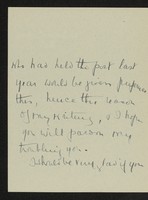 who has held the post last
year would be given preference
this, hence this reason
of my writing, & I hope
you will pardon my
troubling you.
I should be very glad if you